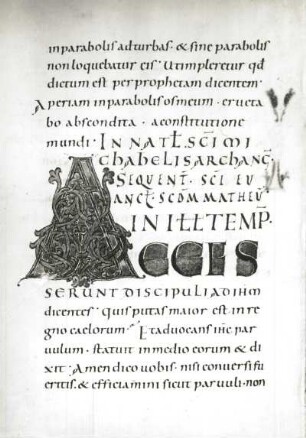 inparabolis adturbas· & sine parabolis
non loquebatur eis· Ut impleretur qd
dictum est per prophetam dicentem·
Aperiam inparabolis os meum· eructa
bo abscondita· a constitutione
mundi· IN NATL SCI MI
CHAHELIS ARCHANG
SEQUENT· SCI EU
ANGL· SCDM MATHEU
IN ILL TEMP
ACCES
SERUNT DISCIPULI AD IHM
dicentes· Quis putas maior est in re
gno caelorum· Et aduocans ihc par
uulum· statuit in medio eorum & di
xit· Amen dico uobis· nisi conuersi fu
eritis· & efficiamini sicut paruuli· non